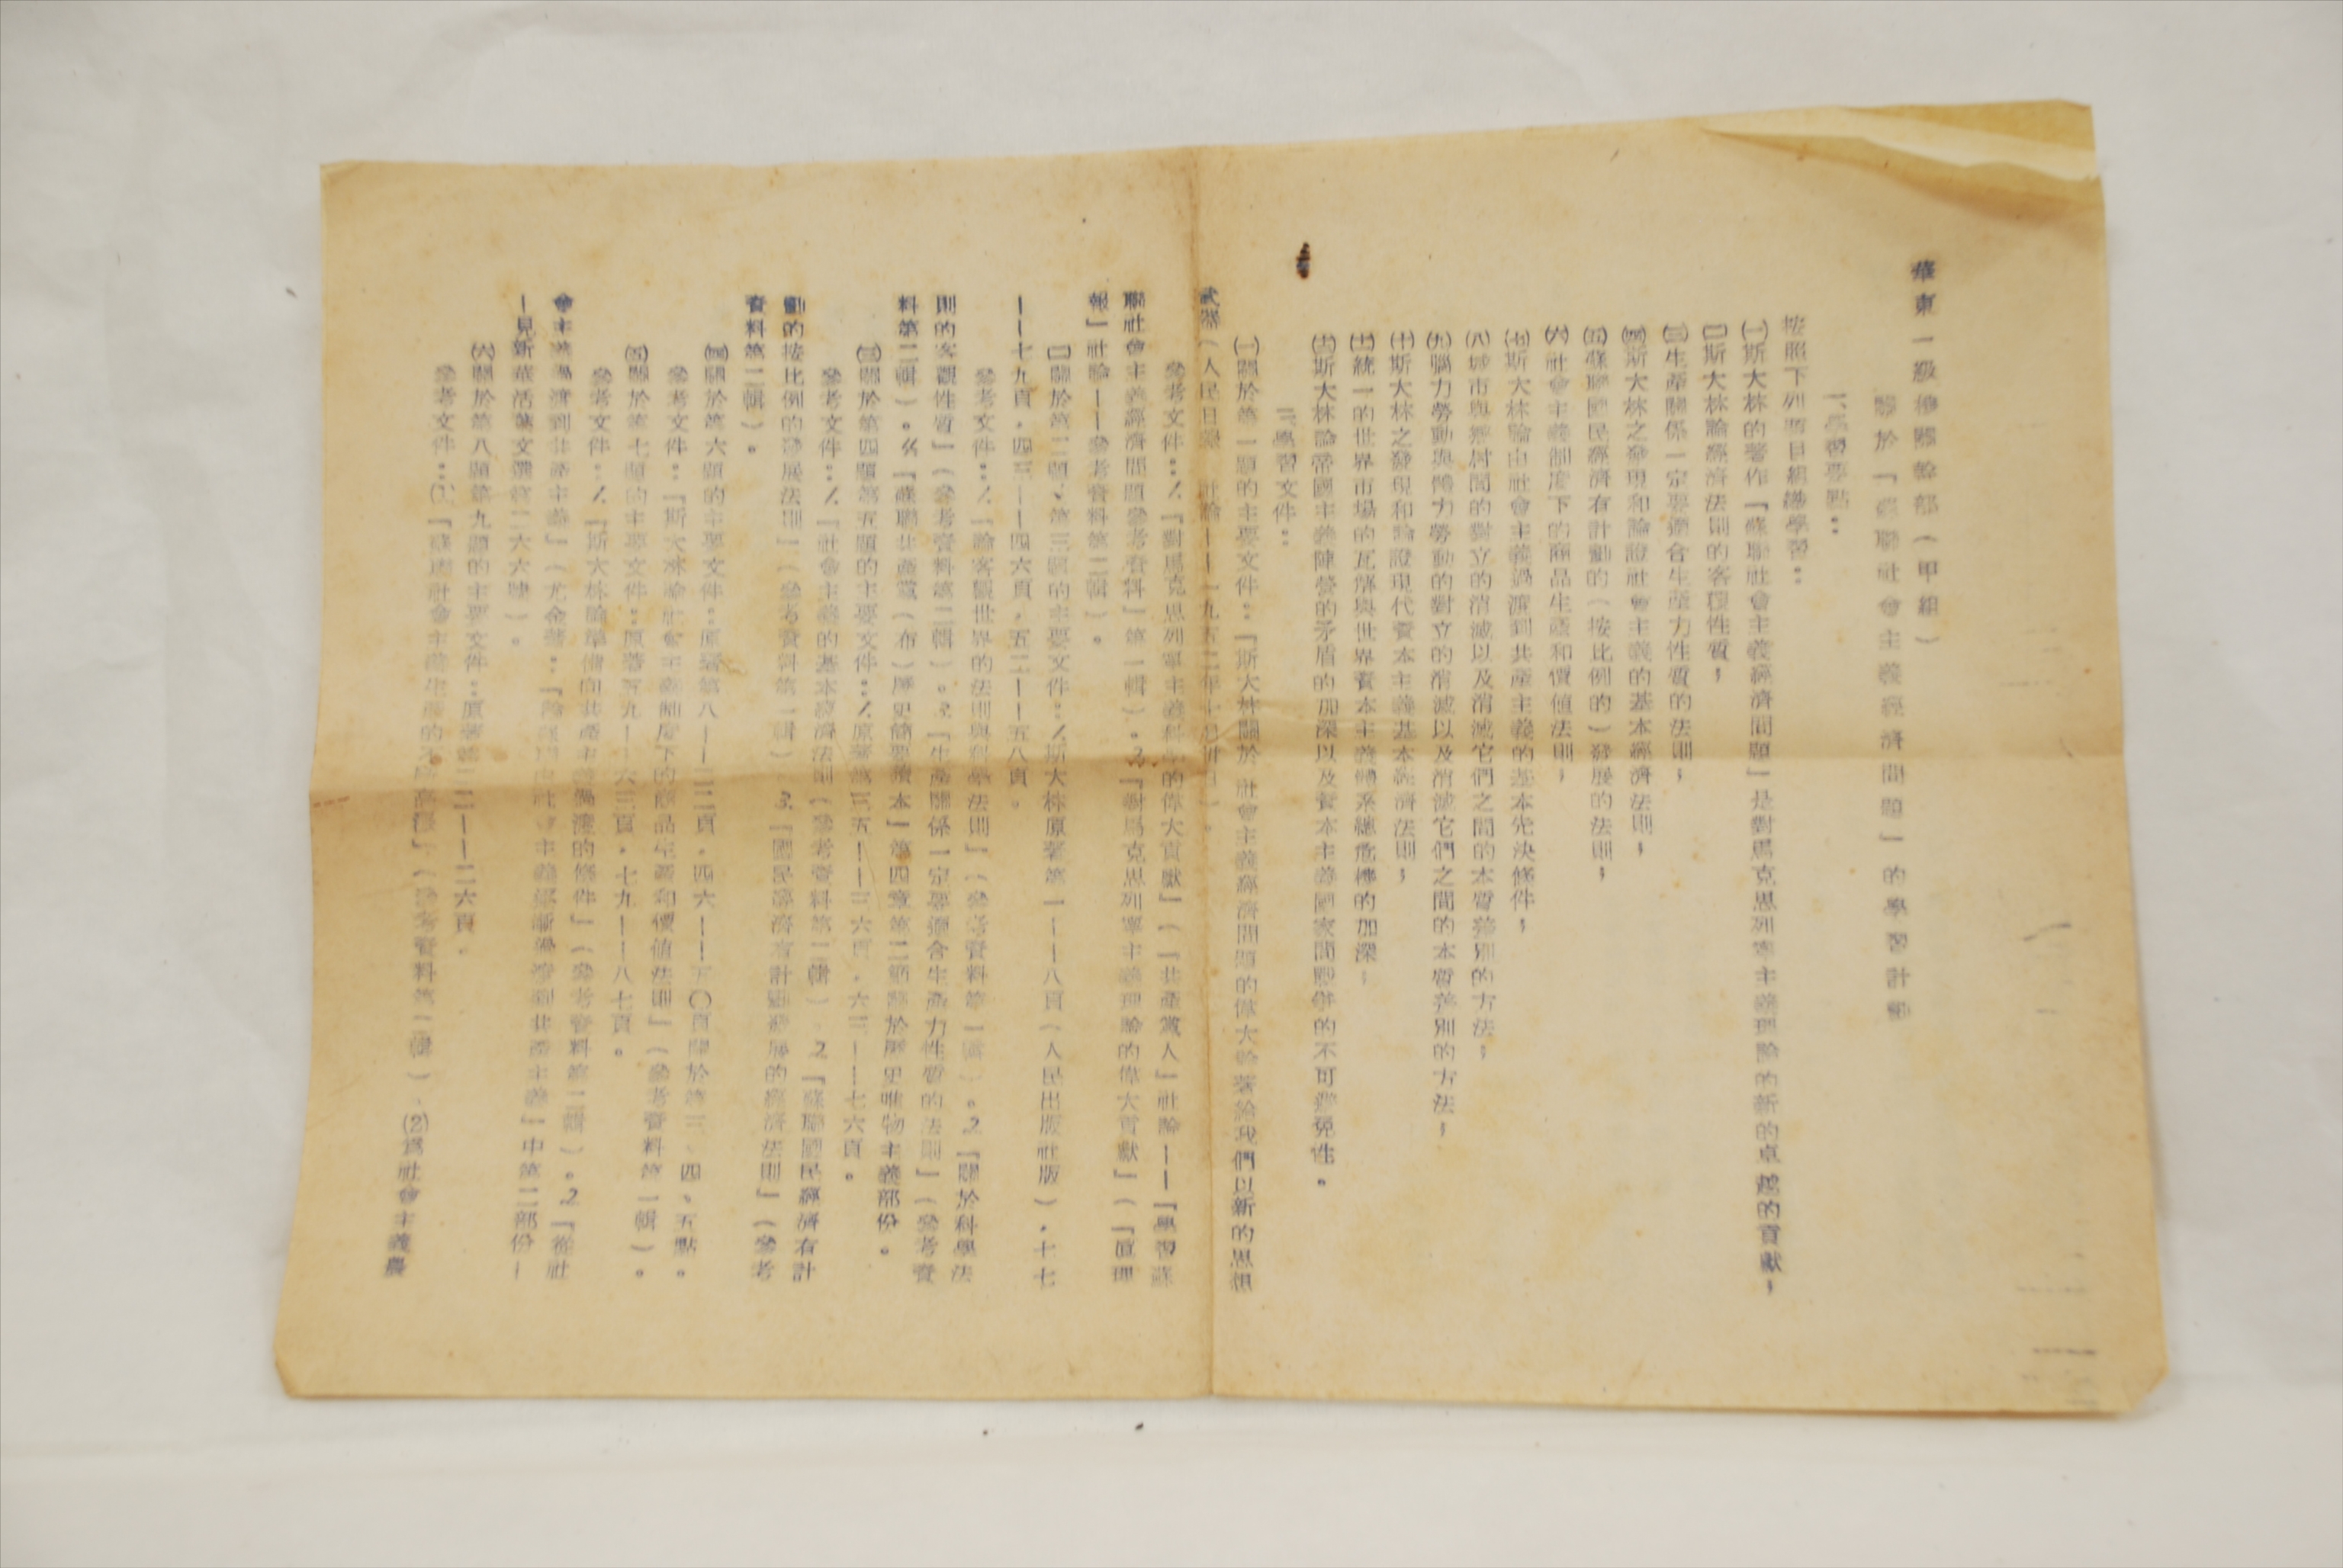 華東一級機關幹部(甲組)
關於「蘇聯社會主義經濟問題」的學習計劃
一、學習要點:
按照下列項目組織學習:
(一)斯大林的著作「蘇聯社會主義經濟問題」是對馬克思列寧主義理論的新的卓越的貢獻;
(二)斯大林論經濟法則的客觀性質;
(三)生產關係一定要適合生產力性質的法則;
(四)斯大林之發現和論證社會主義的基本經濟法則;
(五)蘇聯國民經濟有計劃的(按比例的)發展的法則;
(六)社會主義制度下的商品生產和價值法則;
(七)斯大林論由社會主義過渡到共產主義的基本先決條件;
(八)城市與鄉村間的對立的消滅以及消滅它們之間的本質差別的方法;
(九)腦力勞動與體力勞動的對立的消滅以及消滅它們之間的本質差別的方法;
(十)斯大林之發現和論證現代資本主義基本經濟法則;
(十一)統一的世界市場的瓦解與世界資本主義體系總危機的加深;
(十二)斯大林論帝國主義陣營的矛盾的加深以及資本主義國家間戰爭的不可避免性。
二、學習文件:
(一)關於第一題的主要文件:「斯大林關於社會主義經濟問題的偉大論著給我們以新的思想
武器(人民日報社論——一九五二年
參考文件:1.「對馬克思列寧主義科學的偉大貢獻」(「共產黨人」社論——「學習蘇
聯社會主義經濟問題參考資料」第一輯)。2.「對馬克思列寧主義理論的偉大貢獻」(「真理
報」社論——參考資料第二輯)。
(二)關於第二題、第三題的主要文件:1.斯大林原著第一——八頁(人民出版社版),十七
——七九頁,四三——四六頁,五二——五八頁。
參考文件:1.「論客觀世界的法則與科學法則」(參考資料第一輯)。2.「關於科學法
則的客觀性質」(參考資料第二輯)。3.「生產關係一定要適合生產力性質的法則」(參考資
料第二輯)。4.「蘇聯共產黨(布)歷史簡要讀本」第四章第二節關於歷史唯物主義部份。
(三)關於第四題第五題的主要文件:1.原著第三五——三六頁,六三——七六頁。
參考文件:1.「社會主義的基本經濟法則(參考資料第二輯)2.「蘇聯國民經濟有計
劃的按比例的發展法則」(參考資料第一輯)3.「國民經濟有計劃發展的經濟法則」(參考
資料第二輯)。
(四)關於第六題的主要文件:原著第八——二二頁,四六——五〇頁關於第三、四、五點。
參考文件:「斯大林論社會主義制度下的商品生產和價值法則」(參考資料第一輯)。
(五)關於第七題的主要文件:原著五九——六三頁,七九——八七頁。
參考文件:1.「斯大林論準備向共產主義過渡的條件」(參考資料第二輯)。2.「從社
會主義過渡到共產主義」(尤金著:「論蘇聯由社會主義逐漸過渡到共產主義」中第二部份—
—見新華活葉文選第二六六號)。
(六)關於第八題第九題的主要文件:原著第二二——二六頁。
參考文件:(1)「蘇聯社會主義生產的不斷高漲」(參考資料第二輯)、(2)為社會主義農